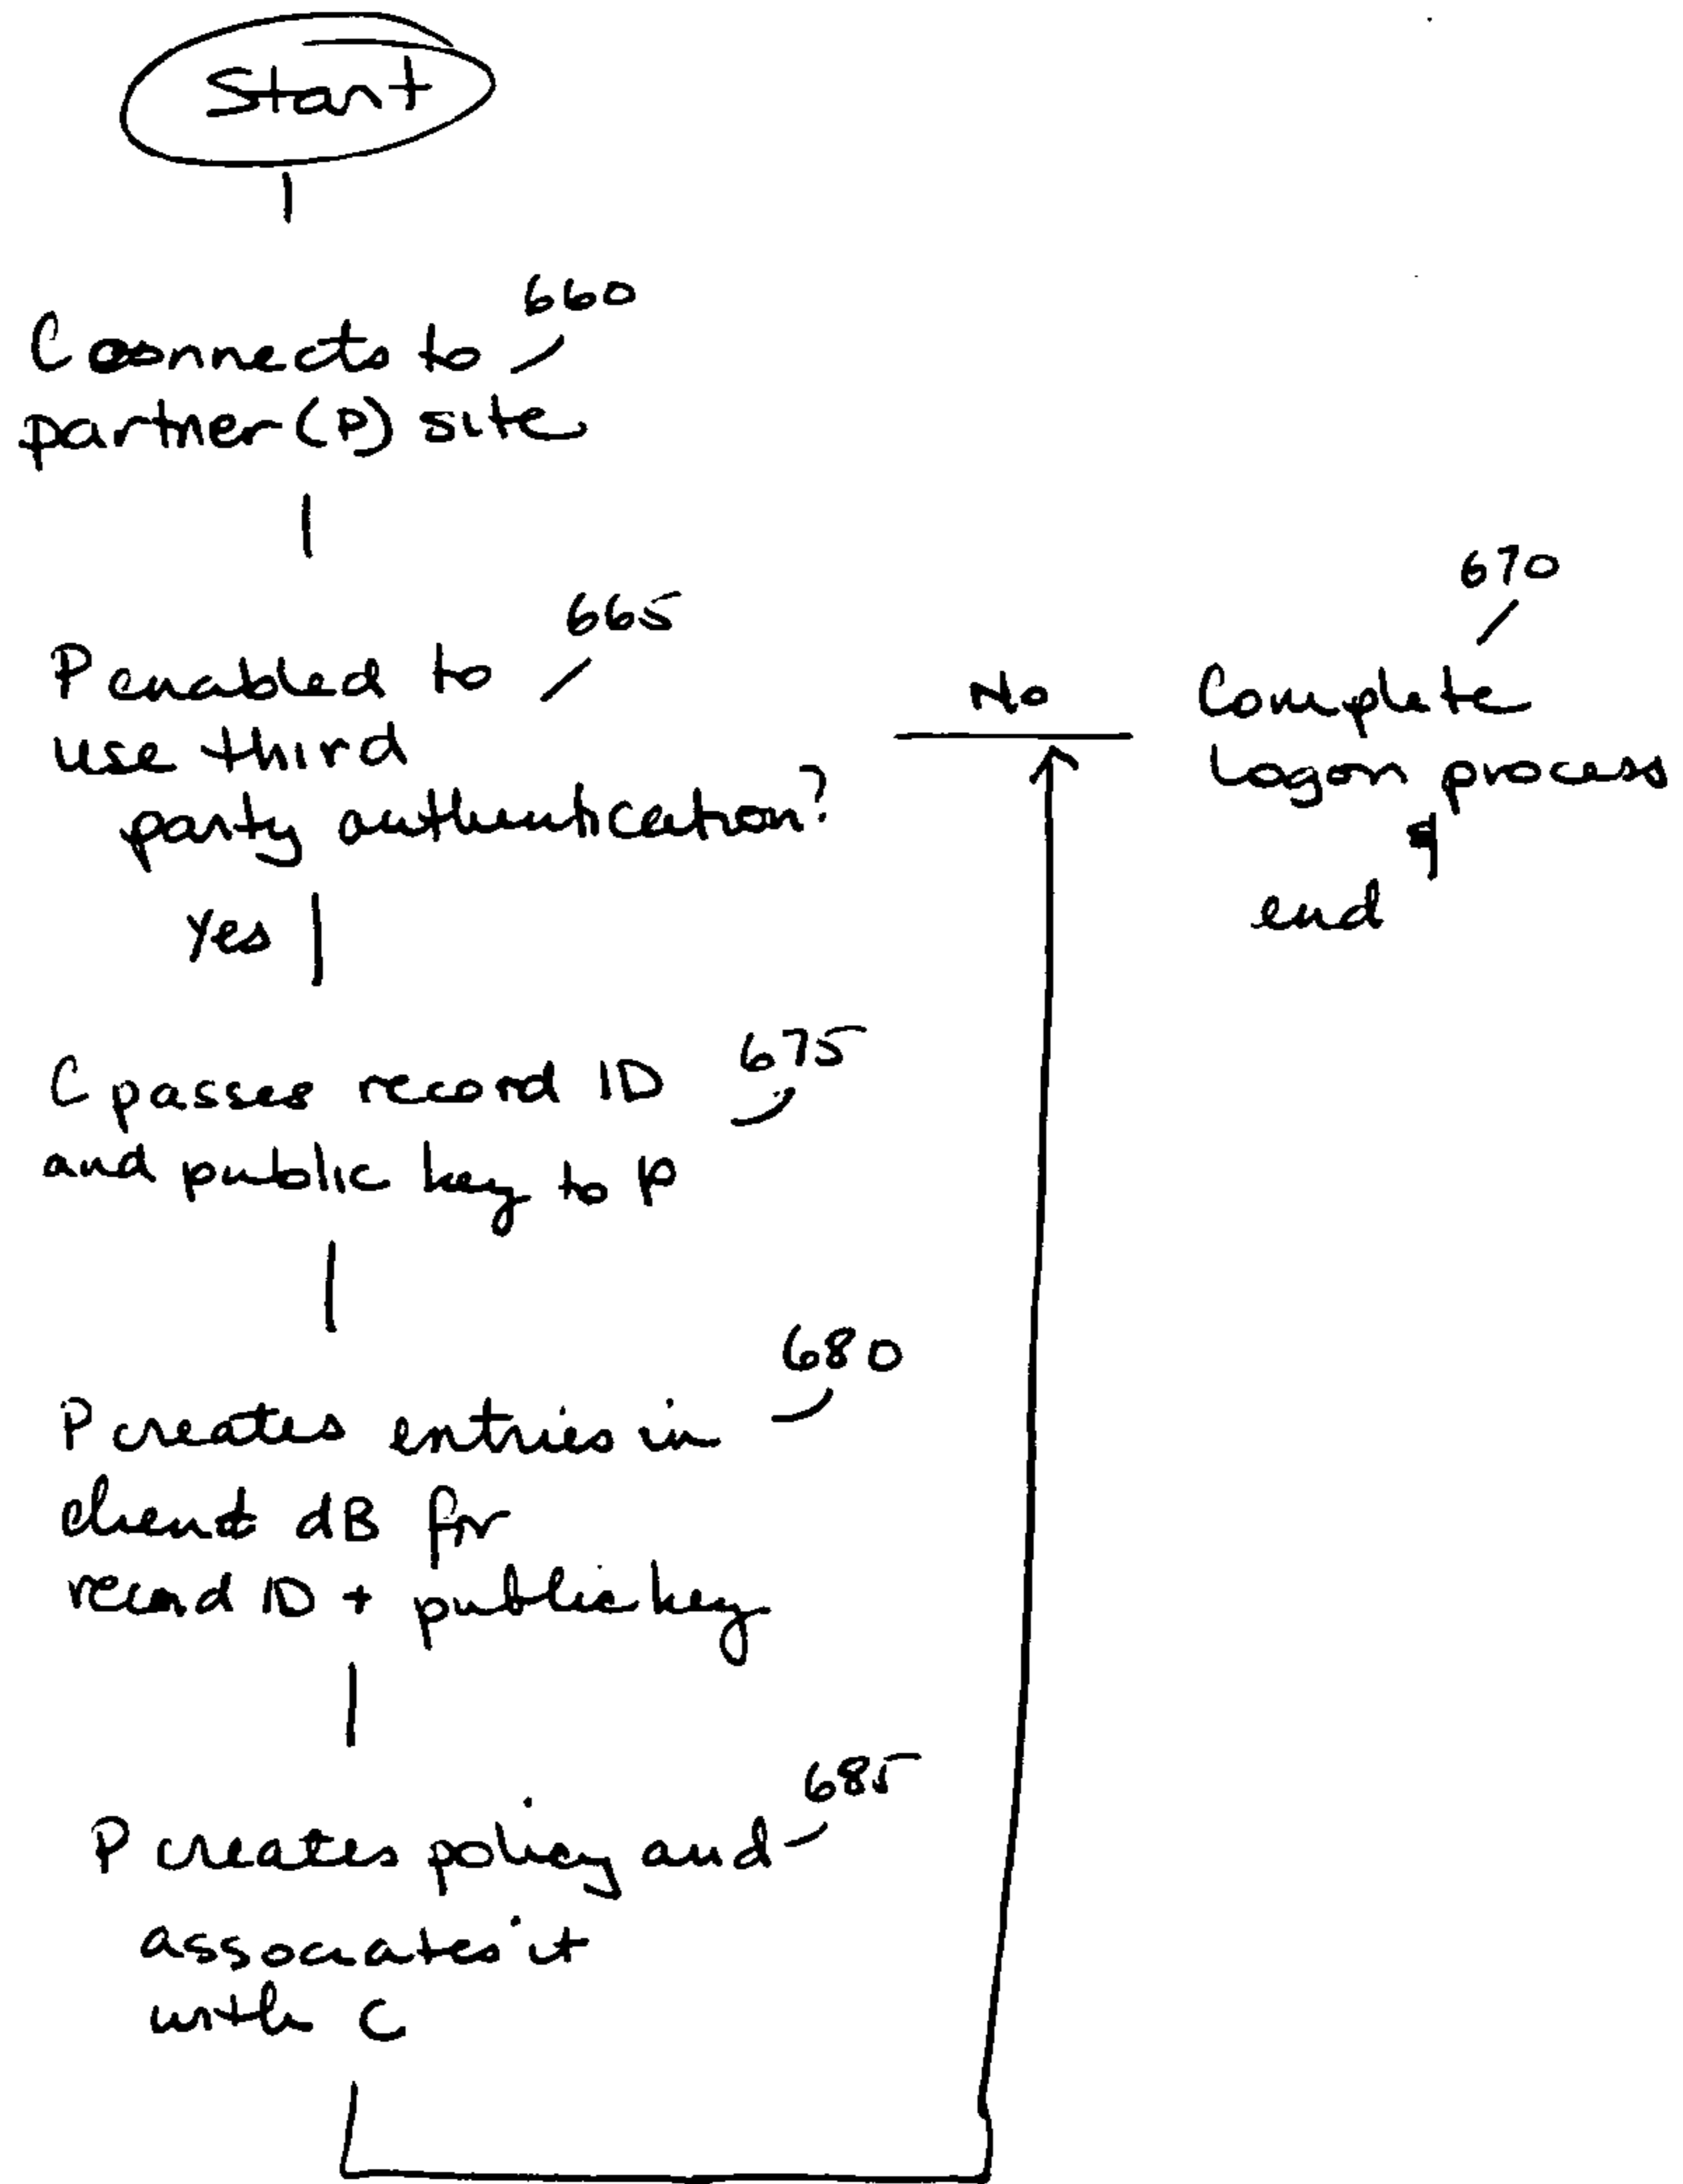 Start
660
C connects to
partner (P) site
665
P enabled to
use third
party authentication?
No
670
Complete
logon process
&
end
Yes
675
C passes record ID
and public key to P
680
P creates entries in
client dB for
record ID + public key
685
P creates policy and
associates it
with C